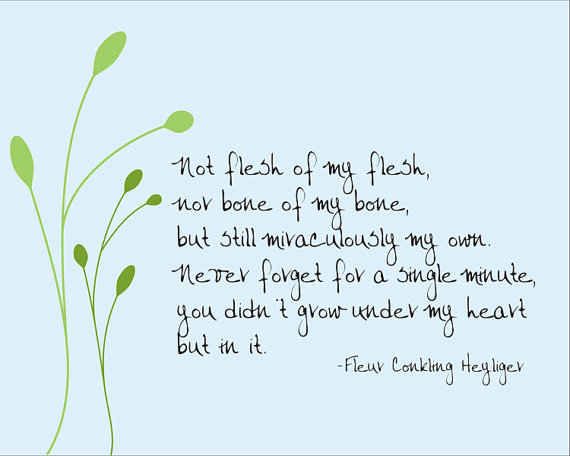 Not flesh of my flesh,
nor bone of my bone,
but still miraculously my own.
Never forget for a single minute,
you didn't grow under my heart
but in it.
-Fleur Conkling Heyliger